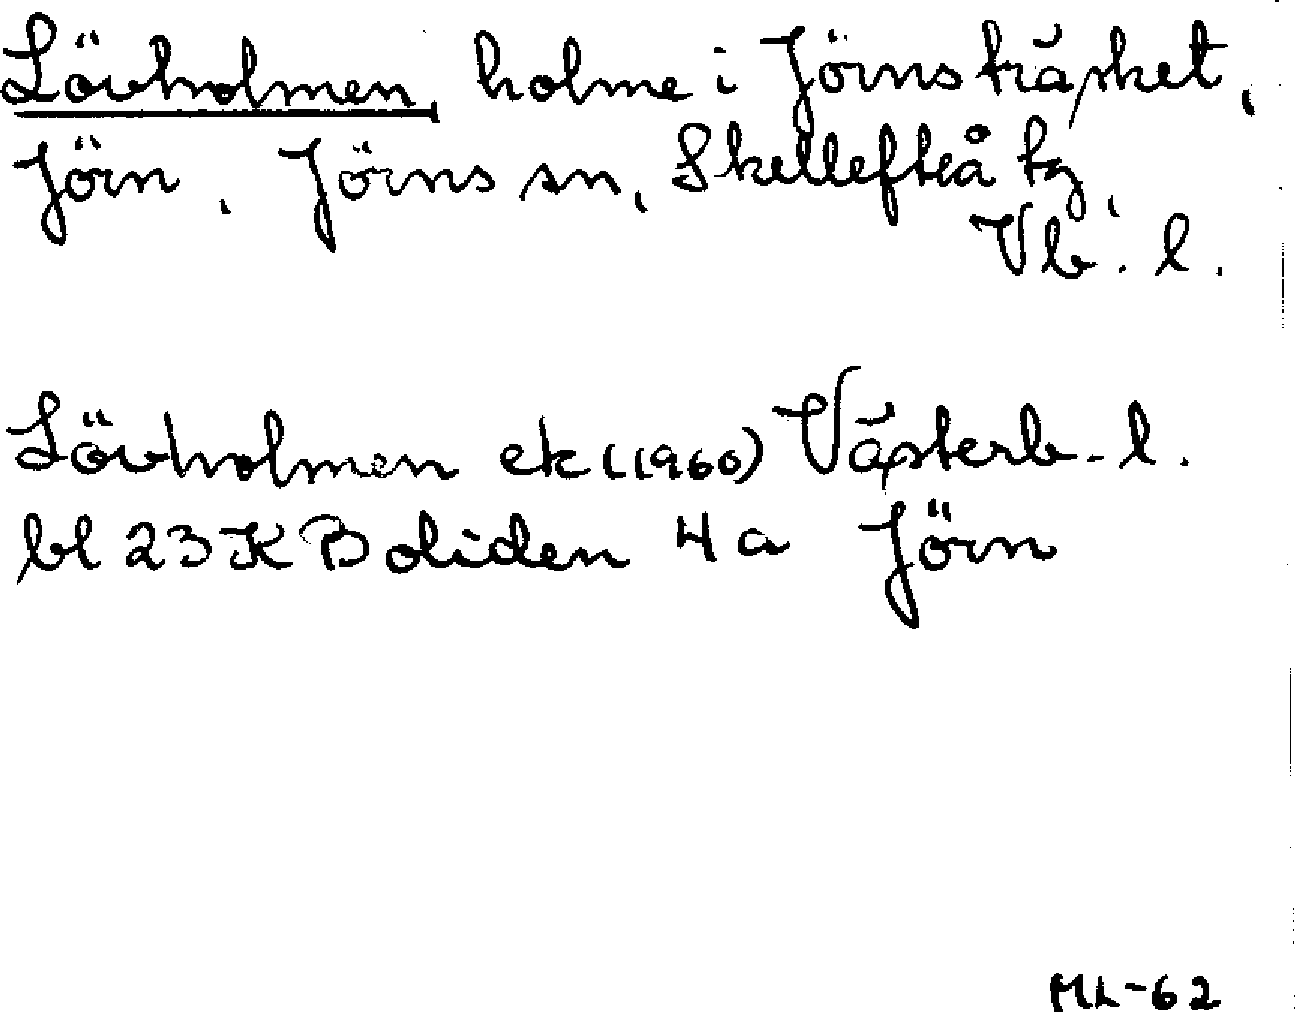 Lövholmen, holme i Jörnsträsket,
Jörn, Jörns sn, Skellefteå tg,
Vb. l.
Lövholmen ek (1960) Västerb. l.
bl 23 K Boliden 4 a Jörn
ML-62